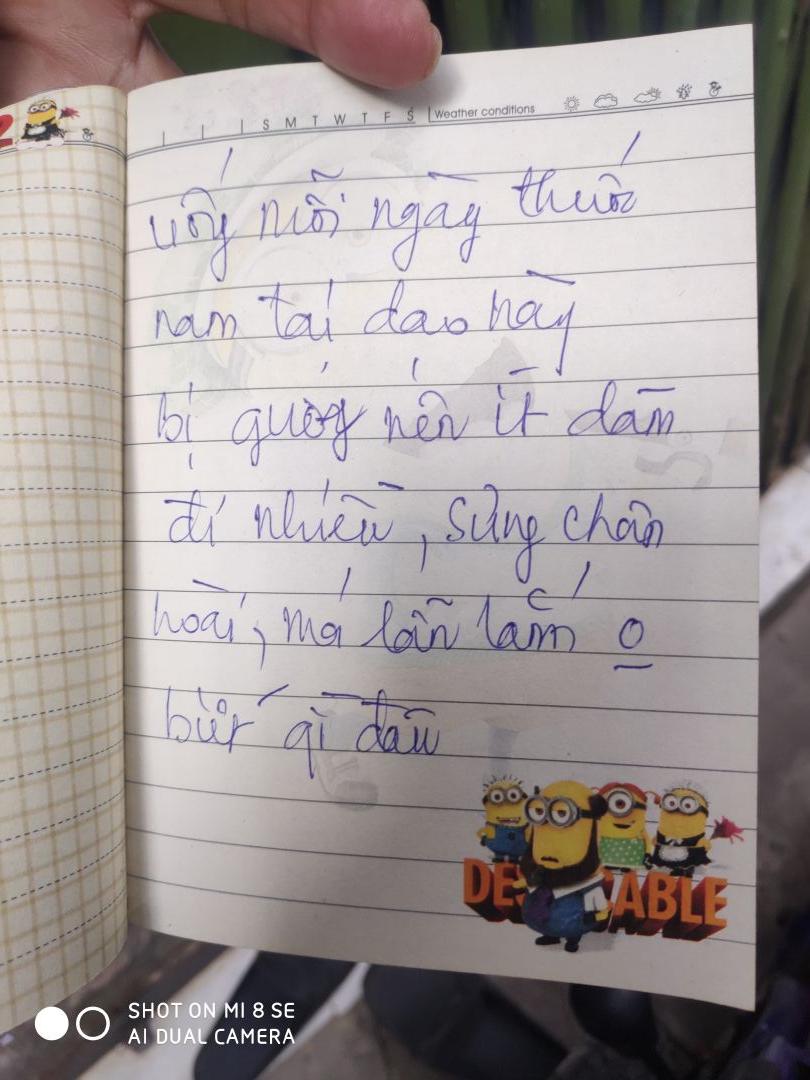 2
S M T W T F S Weather conditions
uống mỗi ngày thuốc
nam tai dao này
bị guớg nên ít dám
đi nhiều, sưng chân
hoài, má lẫn lắm o
biết gì đâu
DESPICABLE
SHOT ON MI 8 SE
AI DUAL CAMERA